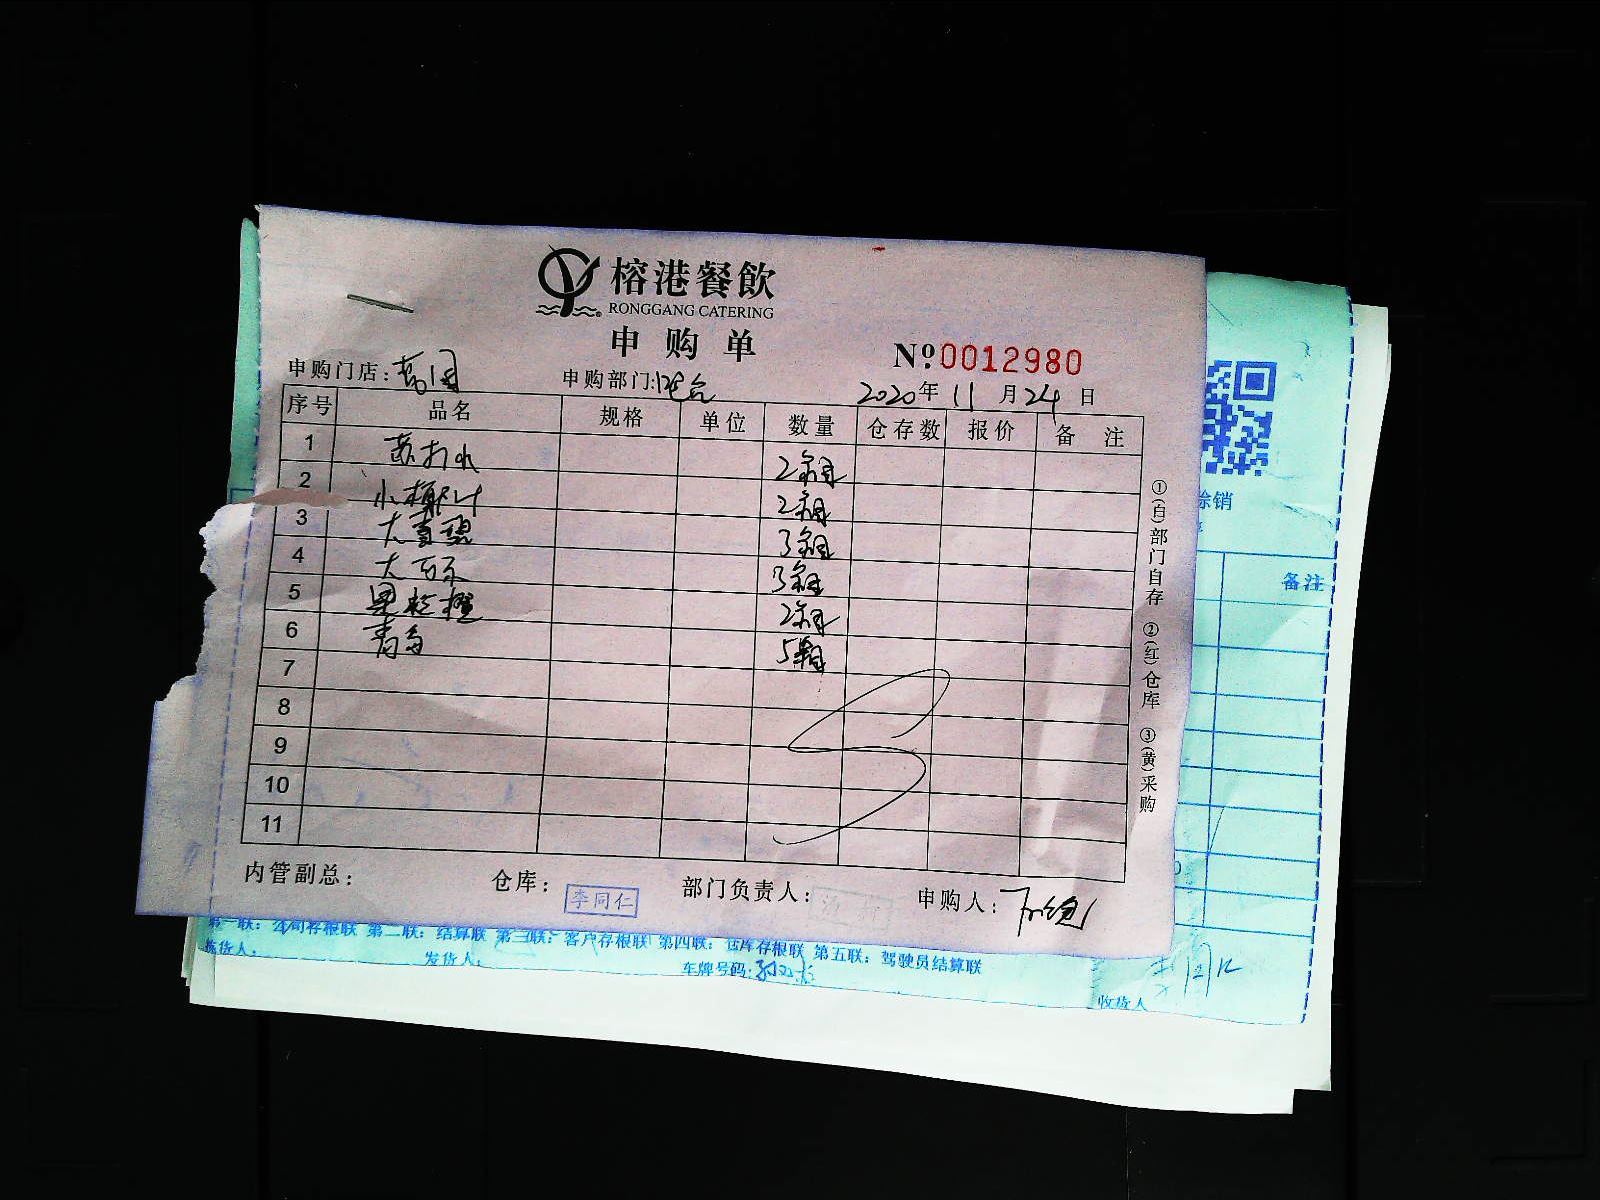 榕港餐飲
RONGGANG CATERING
申购单
№0012980
申购门店: 
申购部门:吧台
2020年11月24日
序号 品名 规格 单位 数量 仓存数 报价 备注
1 苏打水 2箱
2 小椰汁 2箱
3 大雪碧 3箱
4 大可乐 3箱
5 果粒橙 2箱
6 青岛 5箱
7
8
9
10
11
①(白)部门自存 ②(红)仓库 ③(黄)采购
内管副总: 仓库: 李同仁 部门负责人: 申购人:
除销
备注
第一联: 公司存根联 第二联: 结算联 第三联: 客户存根联 第四联: 仓库存根联 第五联: 驾驶员结算联
拣货人: 发货人: 车牌号码:
收货人